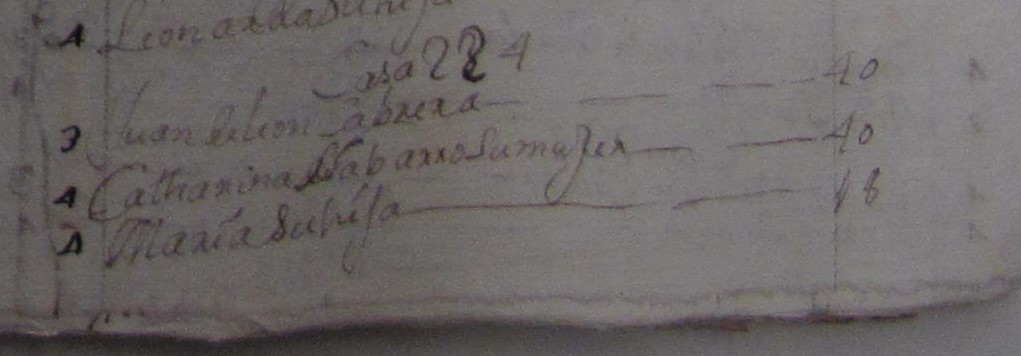 A Leonarda su hija
Casa 224
3 Juan de leon Cabrera 40
A Catharina Nabarro su mujer 40
A Maria su hija 18